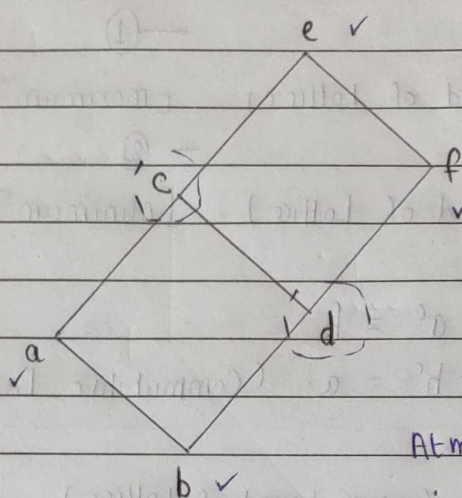 e
f
c
d
a
b
Atm